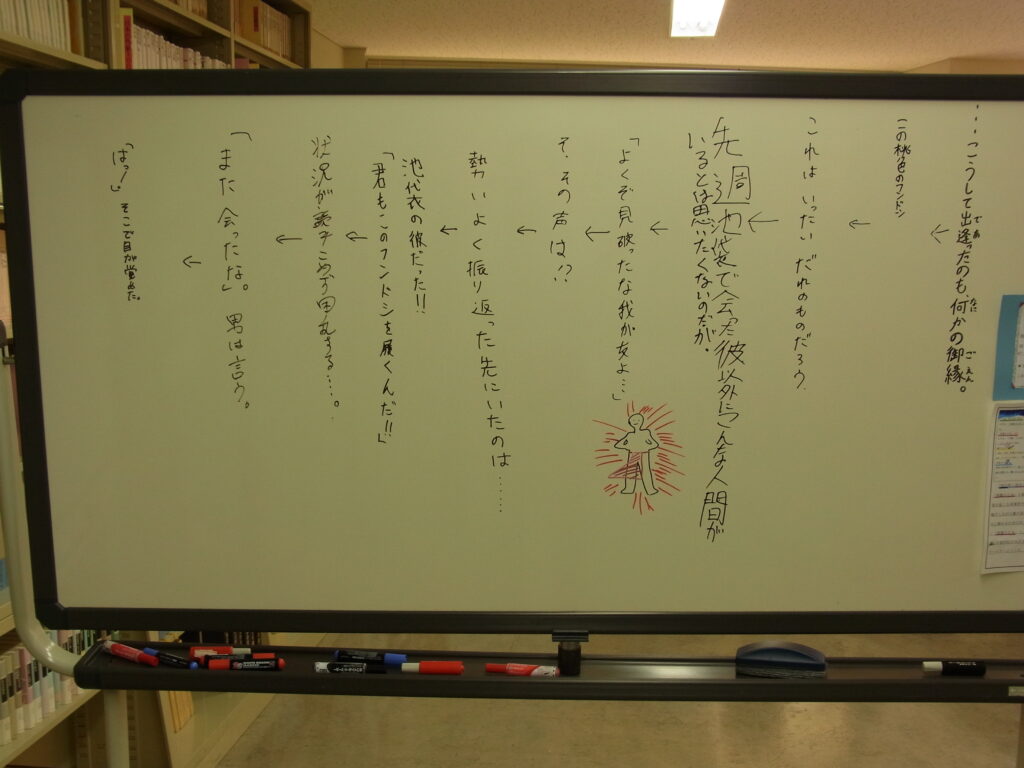 ……こうして出逢ったのも、何かの御縁。
であ
なに
ごえん
この桃色のフンドシ
これはいったい だれのものだろう
先週池袋で会った彼以外にこんな人間が
いるとは思いたくないのだが。
「よくぞ見破ったな我が友よ…」
そ、その声は!?
勢いよく振り返った先にいたのは……
池袋の彼だった!!
「君もこのフンドシを履くんだ!!」
状況が表すこめず困惑する….。
「また会ったな。」男は言う。
「はっ!」そこで目が覚めた。